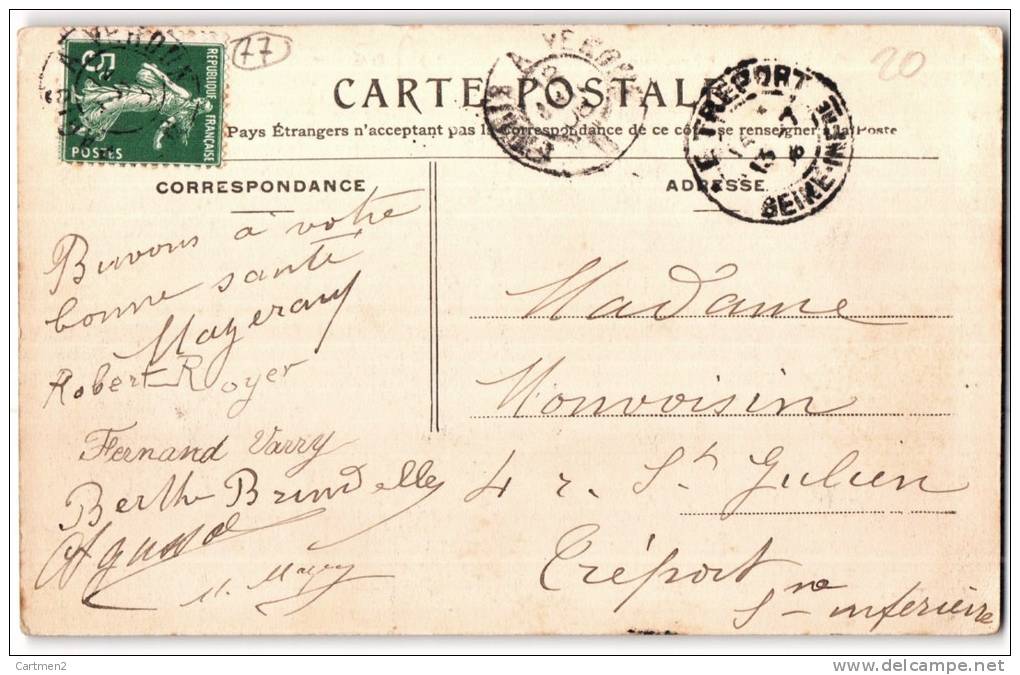 5c
REPUBLIQUE FRANÇAISE
POSTES
77
20
CARTE POSTALE
Pays Étrangers n'acceptant pas la correspondance de ce côté se renseigner à la Poste
LE TREPORT
SEINE-INFRE
CORRESPONDANCE
ADRESSE
Buvons à votre
bonne santé
Mazerany
Robert Royer
Fernand Varry
Berthe Brundelle
Madame
Monvoisin
4 r. St Julien
Tréport
Sne inférieure
Cartmen2
delcampe.net